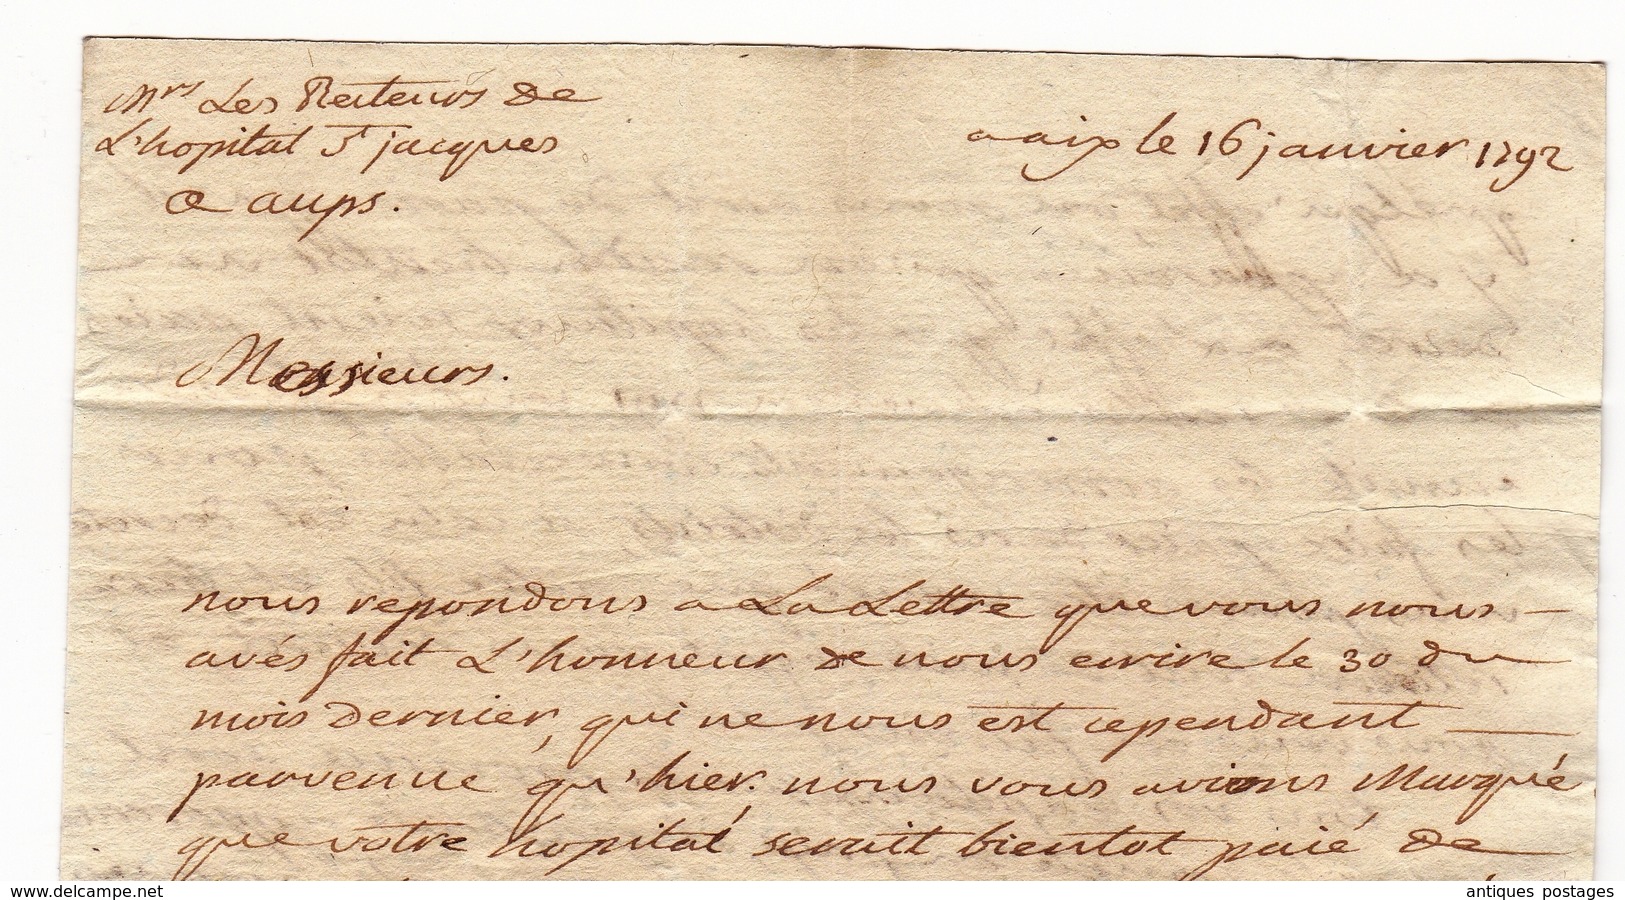 Mrs Les Recteurs de
L'hopital St jacques
a aups.
a aix le 16 janvier 1792
Messieurs.
nous repondons a La Lettre que vous nous —
avés fait L'honneur de nous ecrire le 30 du
mois dernier, qui ne nous est cependant —
parvenue qu'hier. nous vous avions Marqué
que votre hopital serait bientot paié de
delcampe.net
antiques postages